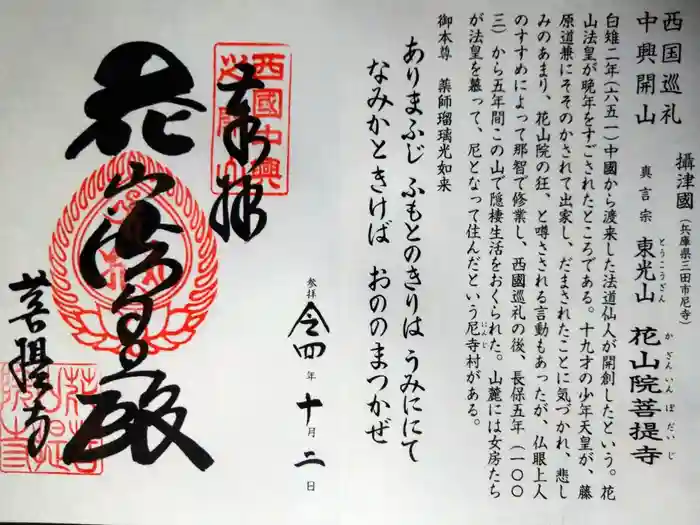 西国巡礼
中興開山
攝津國
(兵庫県三田市尼寺)
真言宗
東光山
とうこうざん
花山院菩提寺
かざんいんぼだいじ
白雉二年(六五一)中國から渡来した法道仙人が開創したという。花
山法皇が晩年をすごされたところである。十九才の少年天皇が、藤
原道兼にそそのかされて出家し、だまされたことに気づかれ、悲し
みのあまり、花山院の狂、と噂さされる言動もあったが、仏眼上人
のすすめによって那智で修業し、西國巡礼の後、長保五年(一〇〇
三)から五年間この山で隠棲生活をおくられた。山麓には女房たち
が法皇を慕って、尼となって住んだという尼寺村がある。
にんじ
御本尊 薬師瑠璃光如来
ありまふじ ふもとのきりは うみににて
なみかときけば おののまつかぜ
参拝
令四年十月二日
奉拝
西國中興
花山法皇殿
菩提寺